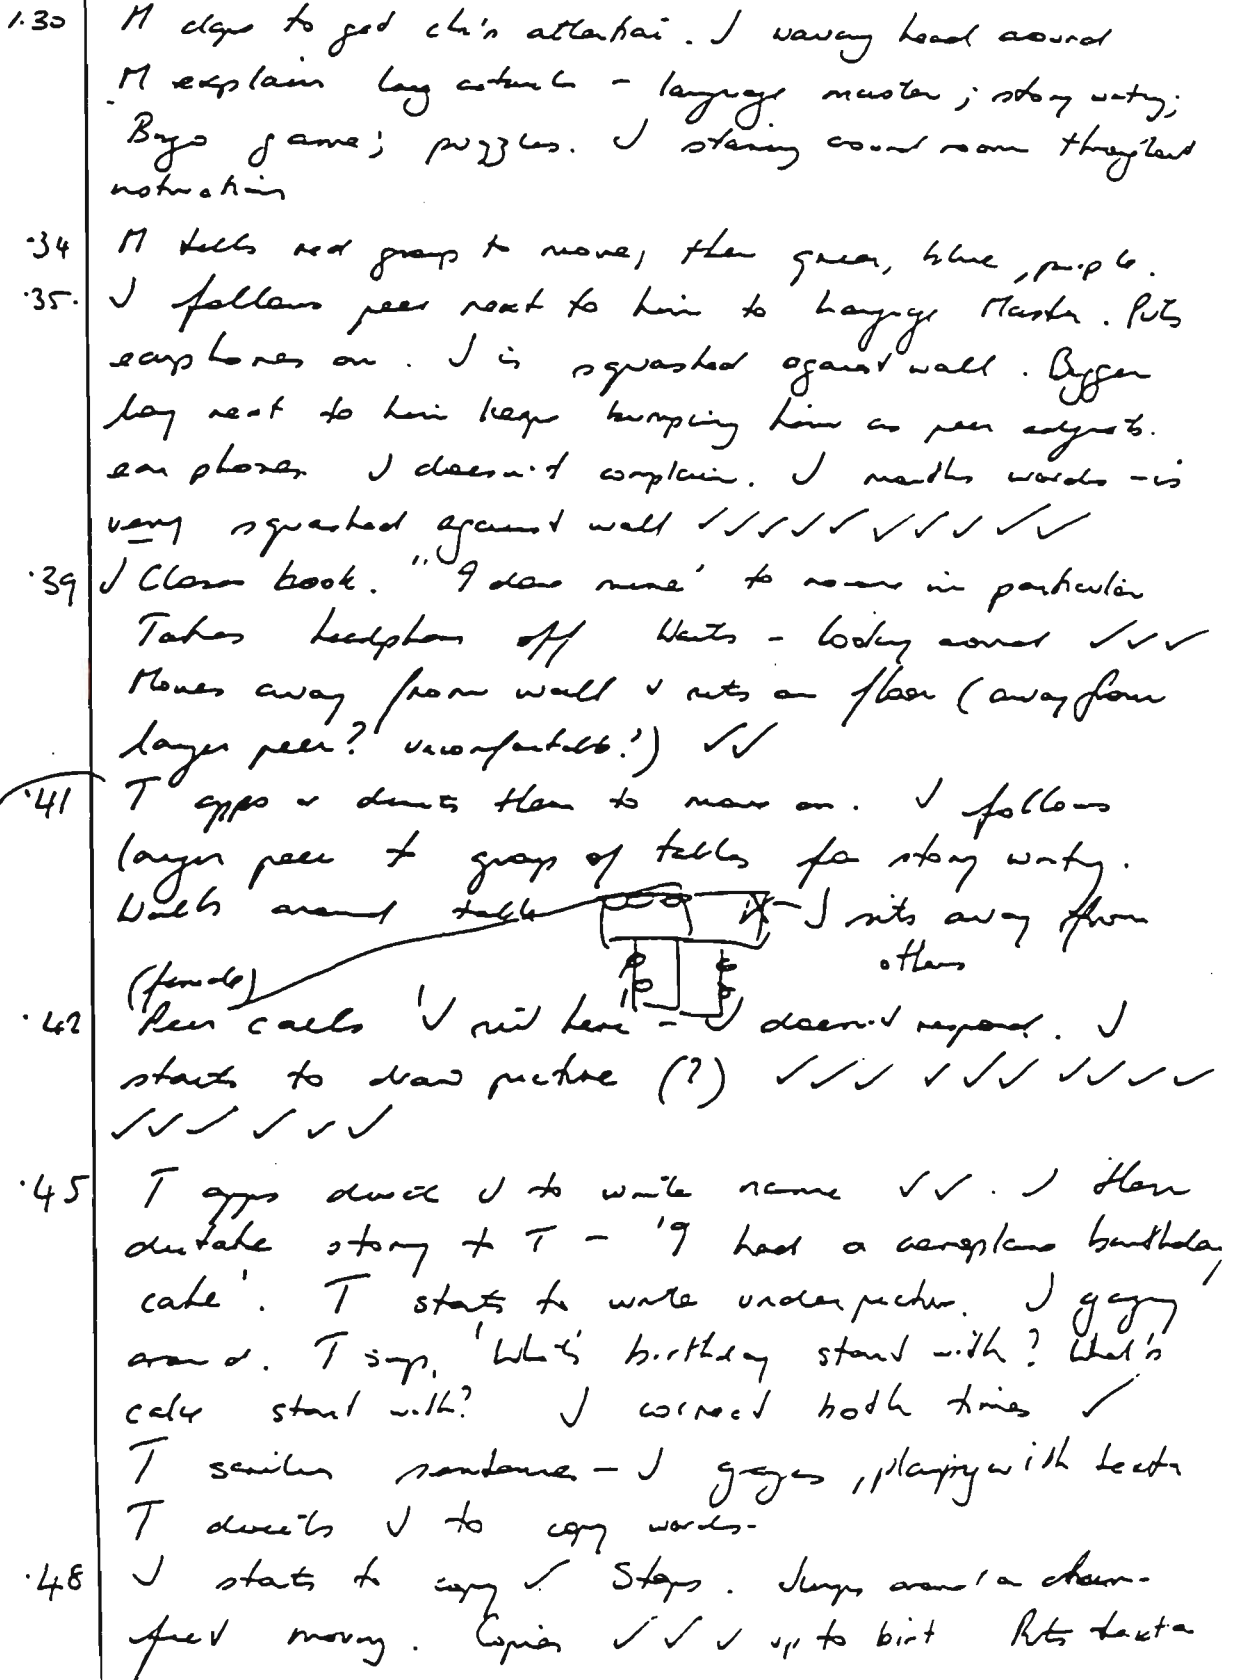 1.30 M claps to get ch'n attention. J waving head around
M explain lang activities - language master; story writing;
Bingo game; puzzles. J staring around room throughout
instructions
.34 M tells red group to move, then green, blue, purple.
.35. J follows peer next to him to Language Master. Puts
earphones on. J is squashed against wall. Bigger
boy next to him keeps bumping him as peer adjusts.
ear phones J doesn't complain. J mouths words - is
very squashed against wall ✓✓✓✓✓✓✓✓✓✓
.39 J Closes book. "I done mine' to no-one in particular
Takes headphones off Waits - looking around ✓✓✓
Moves away from wall & sits on floor (away from
larger peer? uncomfortable?) ✓✓
.41 T apps & directs them to move on. J follows
larger peer to group of tables for story writing.
Walks around table J sits away from
others
(female)
.42 Peer calls 'J sit here - J doesn't respond. J
starts to draw picture (?) ✓✓✓ ✓✓✓✓ ✓✓✓✓
✓✓✓ ✓✓✓
.45 T apps direct J to write name ✓✓. J then
dictate story to T - 'I had a aeroplane birthday
cake'. T starts to write under picture. J gazing
around. T says, 'What's birthday start with? What's
cake start with? J correct both times ✓
T scribes sentence - J gazes, playing with texta
T directs J to copy words-
.48 J starts to copy ✓ Stops. Jumps around on chair-
feet moving. Copies ✓✓✓ up to birt Puts texta